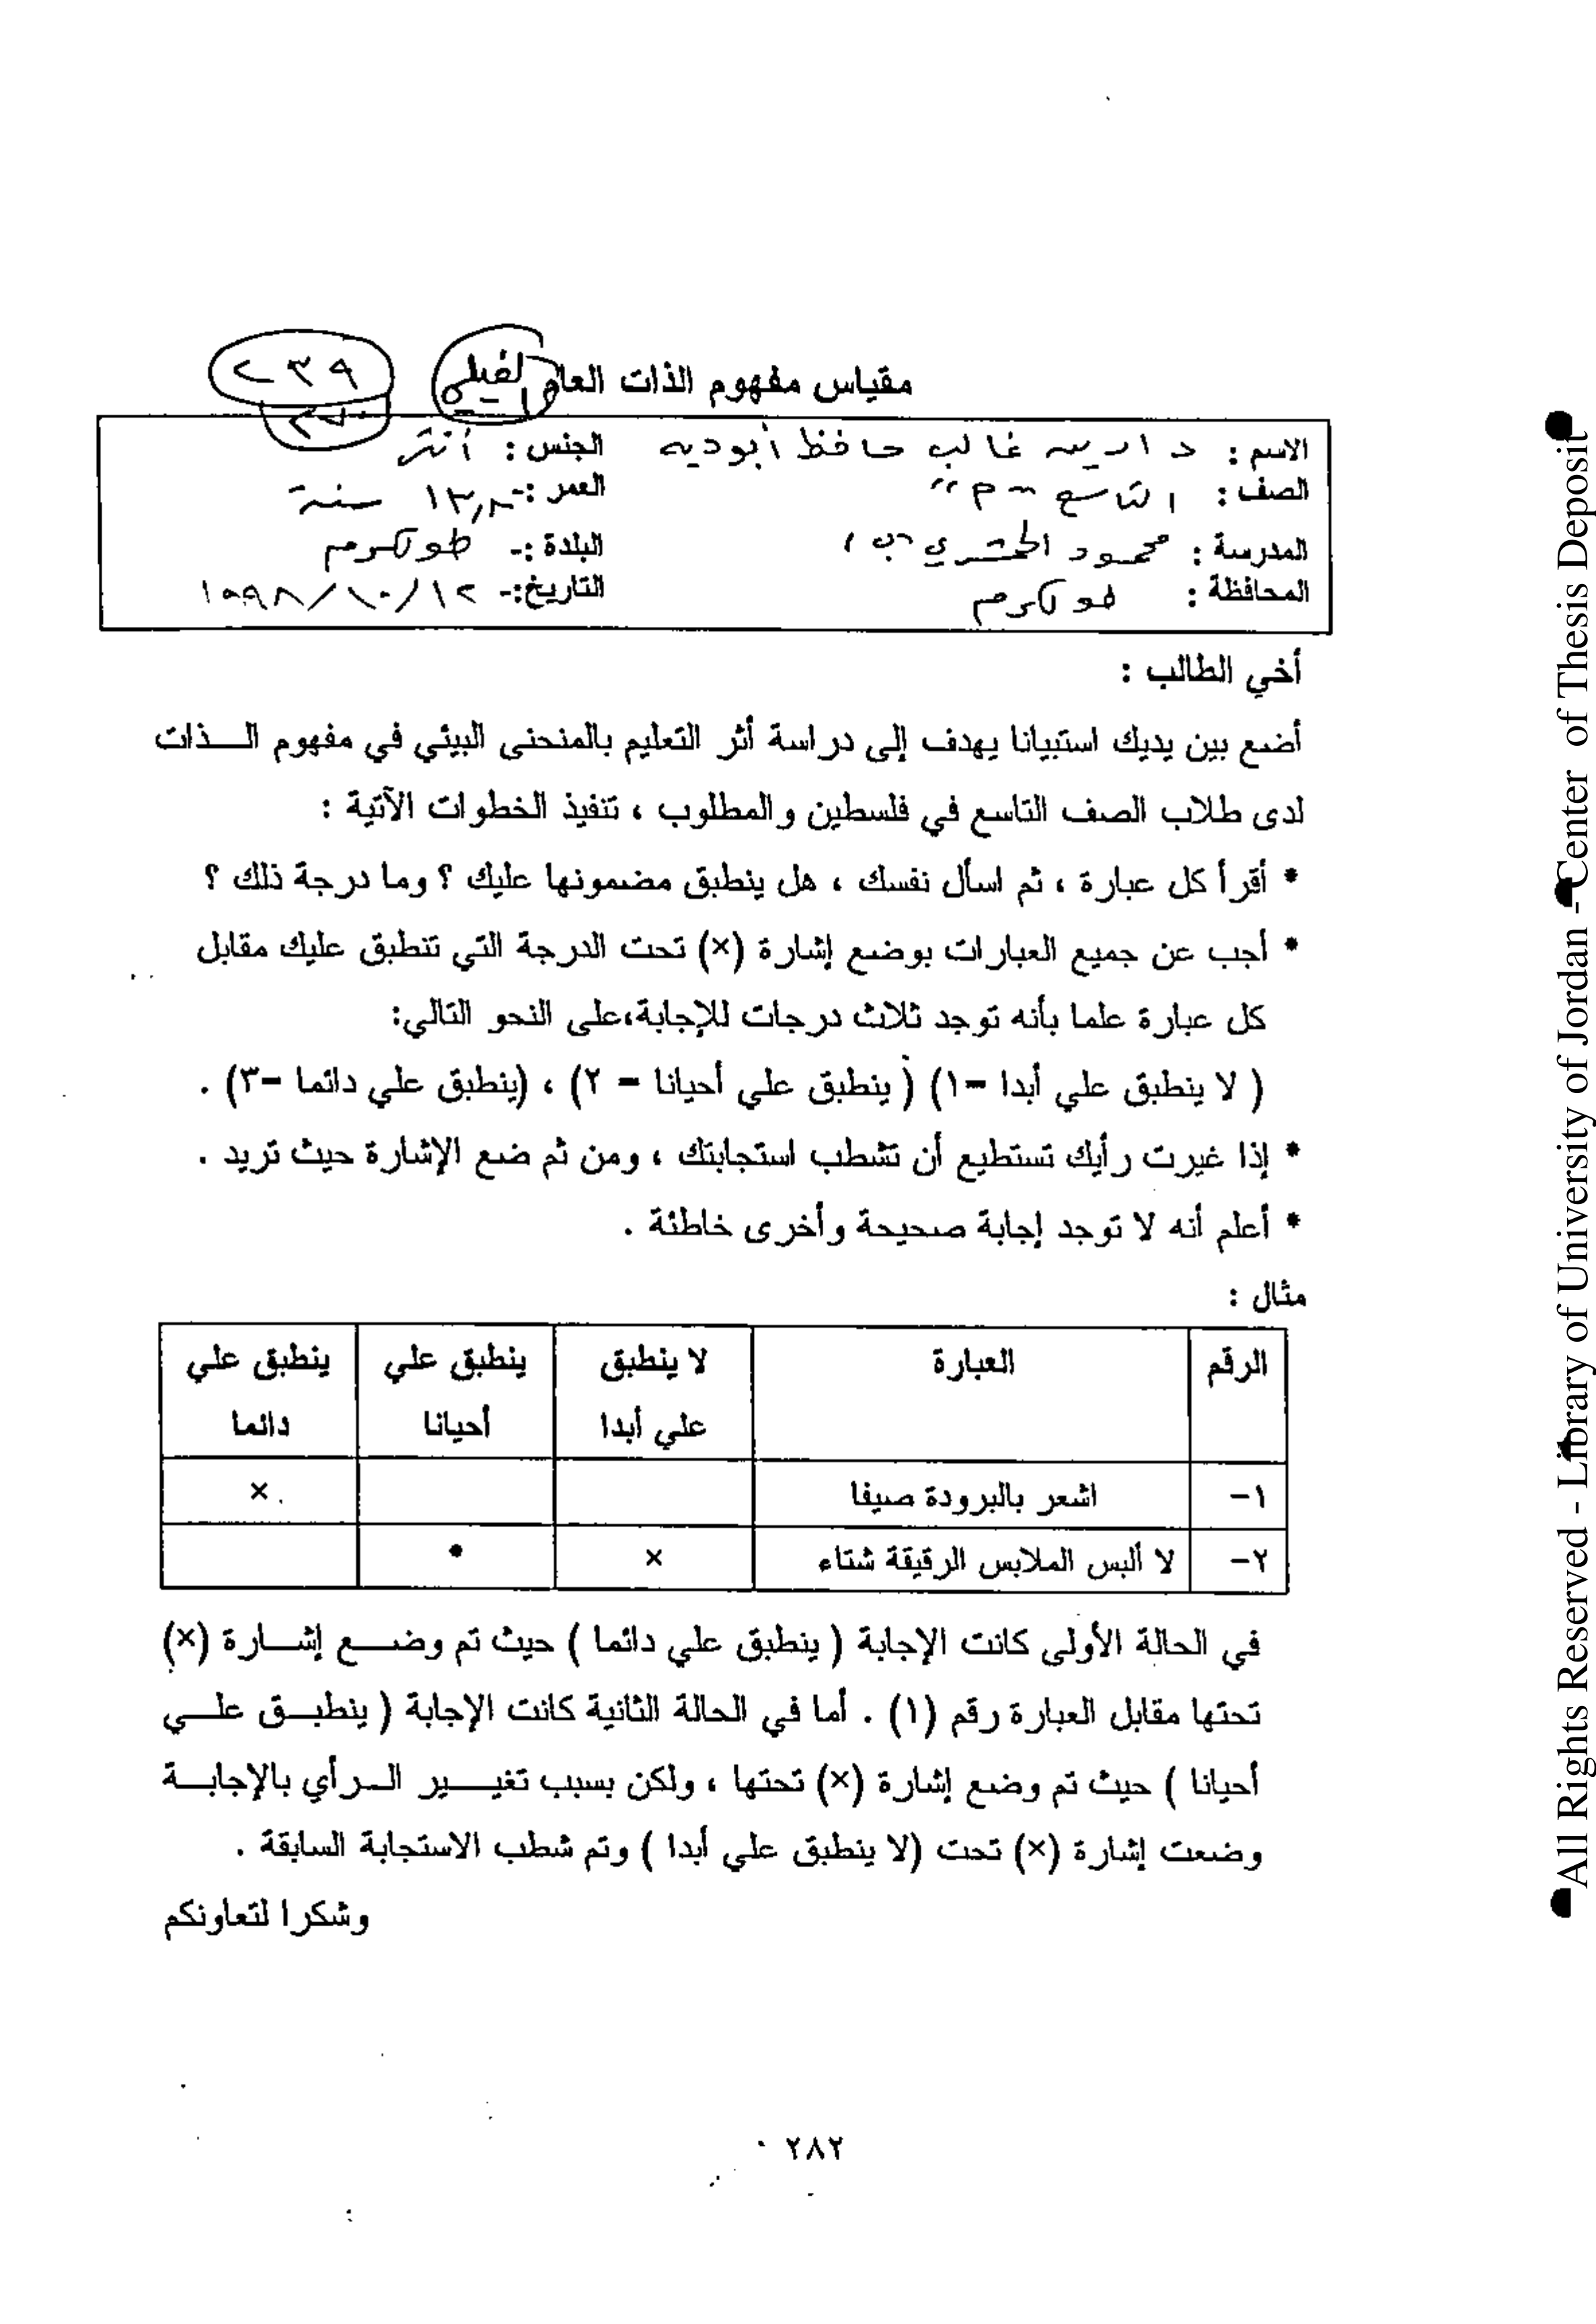 مقياس مفهوم الذات العام القبلي
٢٣٩
الاسم : غالب حافظ أبوديه الجنس : أنثى
الصف : التاسع " م " العمر :- ١٣,٨ سنة
المدرسة : محمود البلدة :- طولكرم
المحافظة : طولكرم التاريخ :- ١٩٩٨/١٠/١٢
أخي الطالب :
أضع بين يديك استبيانا يهدف إلى دراسة أثر التعليم بالمنحنى البيئي في مفهوم الــذات
لدى طلاب الصف التاسع في فلسطين والمطلوب ، تنفيذ الخطوات الآتية :
* أقرأ كل عبارة ، ثم اسأل نفسك ، هل ينطبق مضمونها عليك ؟ وما درجة ذلك ؟
* أجب عن جميع العبارات بوضع إشارة (×) تحت الدرجة التي تنطبق عليك مقابل
كل عبارة علما بأنه توجد ثلاث درجات للإجابة،على النحو التالي:
( لا ينطبق علي أبدا =١) ( ينطبق علي أحيانا = ٢) ، (ينطبق علي دائما =٣) .
* إذا غيرت رأيك تستطيع أن تشطب استجابتك ، ومن ثم ضع الإشارة حيث تريد .
* أعلم أنه لا توجد إجابة صحيحة وأخرى خاطئة .
مثال :
الرقم العبارة لا ينطبق علي أبدا ينطبق علي أحيانا ينطبق علي دائما
١- اشعر بالبرودة صيفا ×
٢- لا ألبس الملابس الرقيقة شتاء × •
في الحالة الأولى كانت الإجابة ( ينطبق علي دائما ) حيث تم وضـــع إشــــارة (×)
تحتها مقابل العبارة رقم (١) . أما في الحالة الثانية كانت الإجابة ( ينطبــق علــي
أحيانا ) حيث تم وضع إشارة (×) تحتها ، ولكن بسبب تغيـــير الـرأي بالإجابــة
وضعت إشارة (×) تحت (لا ينطبق علي أبدا ) وتم شطب الاستجابة السابقة .
وشكرا لتعاونكم
٢٨٢
All Rights Reserved - Library of University of Jordan - Center of Thesis Deposit